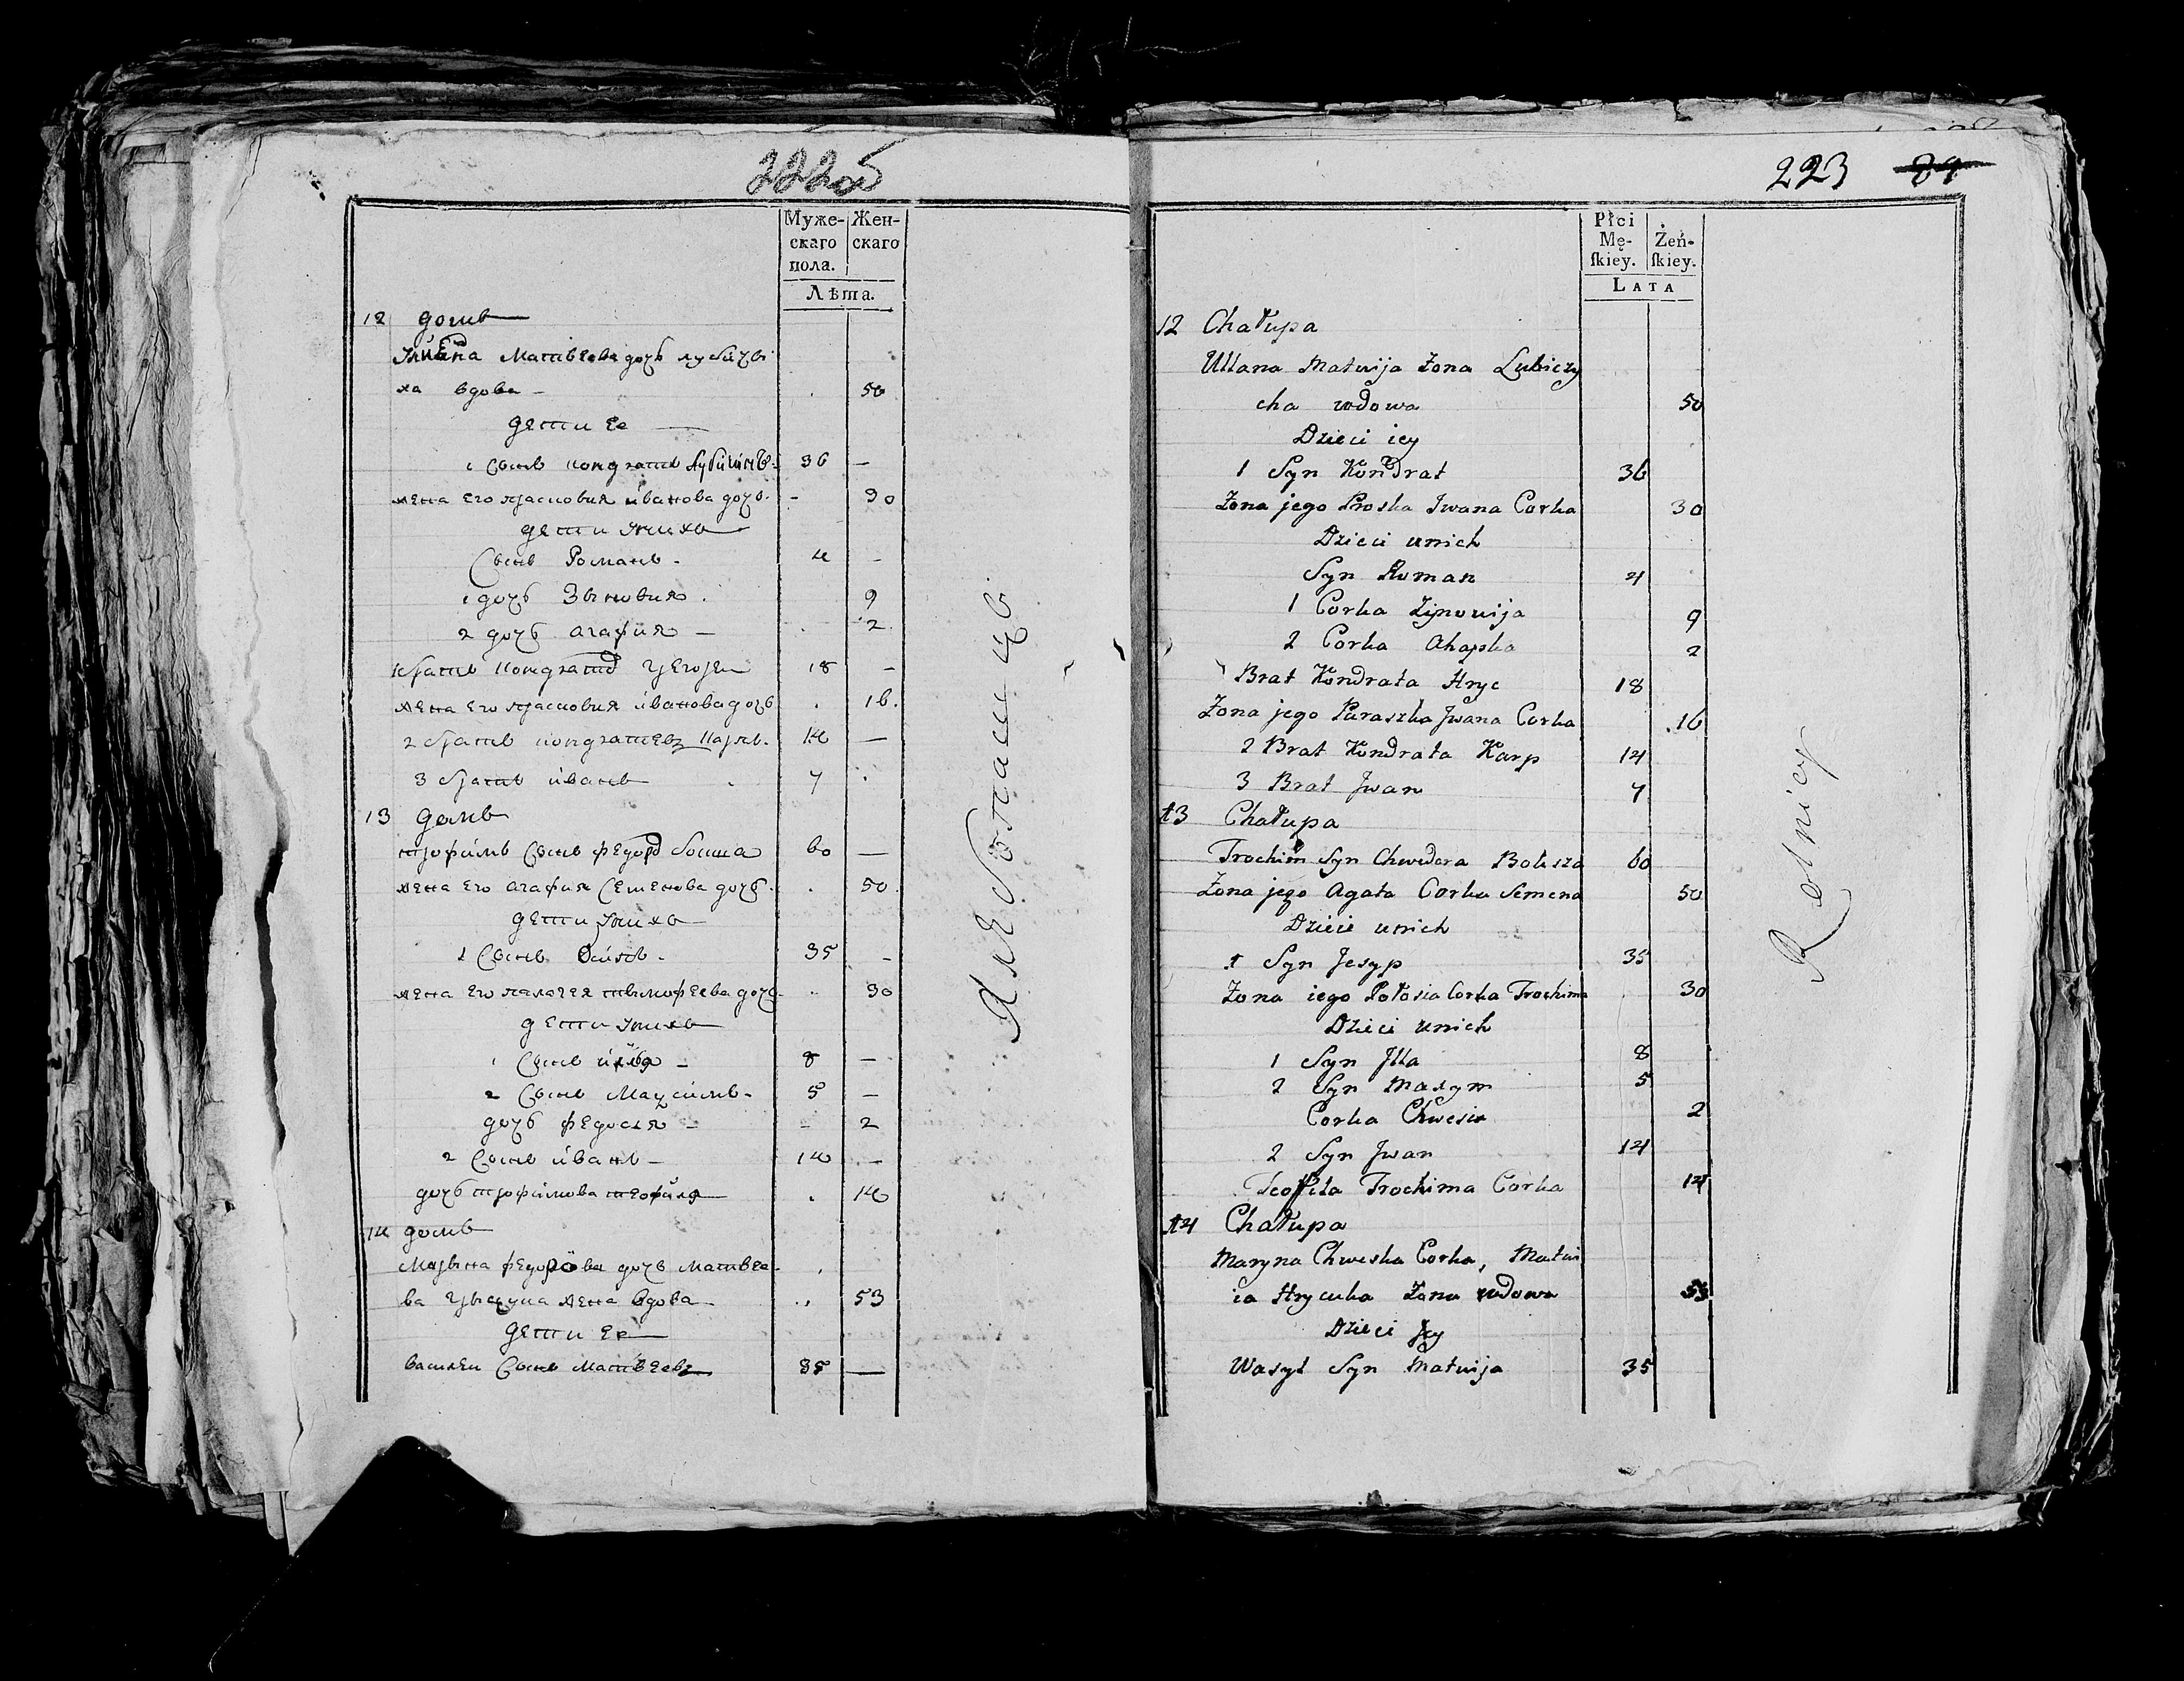 222об
Муже- Жен-
скаго скаго
пола.
Лѣта.
12 домъ
Матвѣева дочь лубичи
ха вдова 50
дети ее
1 Сынъ кондратъ 36 —
жена его прасковия иванова дочь 30
дети у них
Сынъ Романъ 4 -
1 дочь Зыновия 9
2 дочь агафия 2
1 братъ кондрата григорей 18 -
жена его прасковия иванова дочь 16
2 братъ кондратевъ карпъ 14 —
3 братъ иванъ 7
13 домъ
трофимъ Сынъ федора 60 —
жена его агафия Семенова дочь 50
дети у них
1 Сынъ 35 -
жена его палагея тимофеева дочь 30
дети у них
1 Сынъ илья 8 —
2 Сынъ Мацимъ 5 —
дочь федосия - 2
2 Сынъ иванъ 14 —
дочь трофимова теофиля 14
14 домъ
Марына федорова дочь матвѣе-
ва грыцука жена вдова 53
дети ее
василей Сынъ матвѣевъ 35 —
Хлебопашцо
223 84
Płci
Mę- Żeń-
ſkiey. ſkiey.
LATA
12 Chałupa
Ullana Matwija Zona Lubiczy
cha wdowa 50
Dzieci iey
1 Syn Kondrat 36
Zona jego Proska Iwana Corka 30
Dzieci unich
Syn Roman 4
1 Corka Zynowija 9
2 Corka Ahapka 2
Brat Kondrata Hryc 18
Zona jego Paraszka Jwana Corka 16
2 Brat Kondrata Karp 14
3 Brat Jwan 7
13 Chałupa
Trochim Syn Chwedora Bolisza 60
Zona jego Agata Corka Semena 50
Dzieci unich
1 Syn Jesyp 35
Zona iego Połosia Corka Trochima 30
Dzieci unich
1 Syn Jlla 8
2 Syn Maxym 5
Corka Chwesia 2
2 Syn Jwan 14
Teofila Trochima Corka 14
14 Chałupa
Maryna Chweska Corka, Matwi
ia Hrycuka Zona wdowa 53
Dzieci Jey
Wasyl Syn Matwija 35
Rolnicy